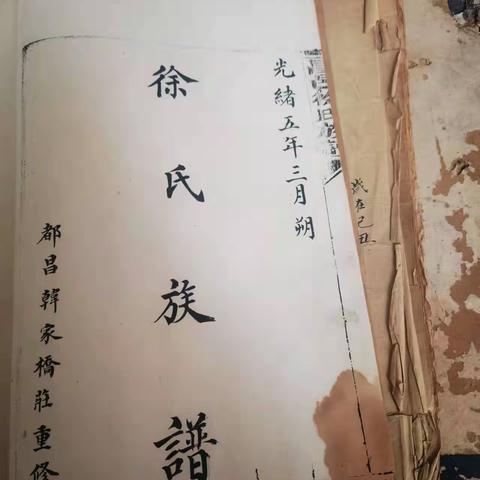 歲在己丑
光緒五年三月朔
徐氏族譜
都昌韓家橋莊重修